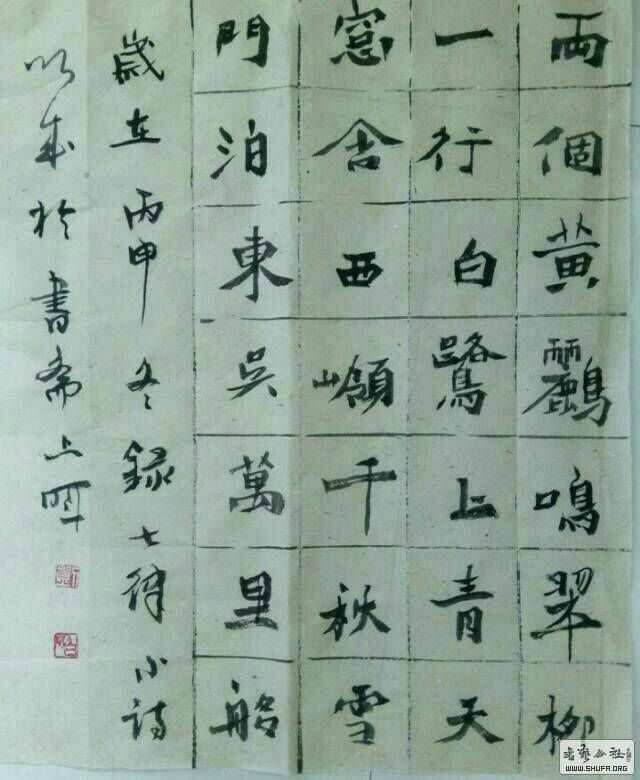 兩個黄鸝鳴翠柳
一行白鷺上青天
窓含西嶺千秋雪
門泊東吳萬里船
歲在丙申冬錄七律小詩
於書齋上
書艺公社
WWW.SHUFA.ORG